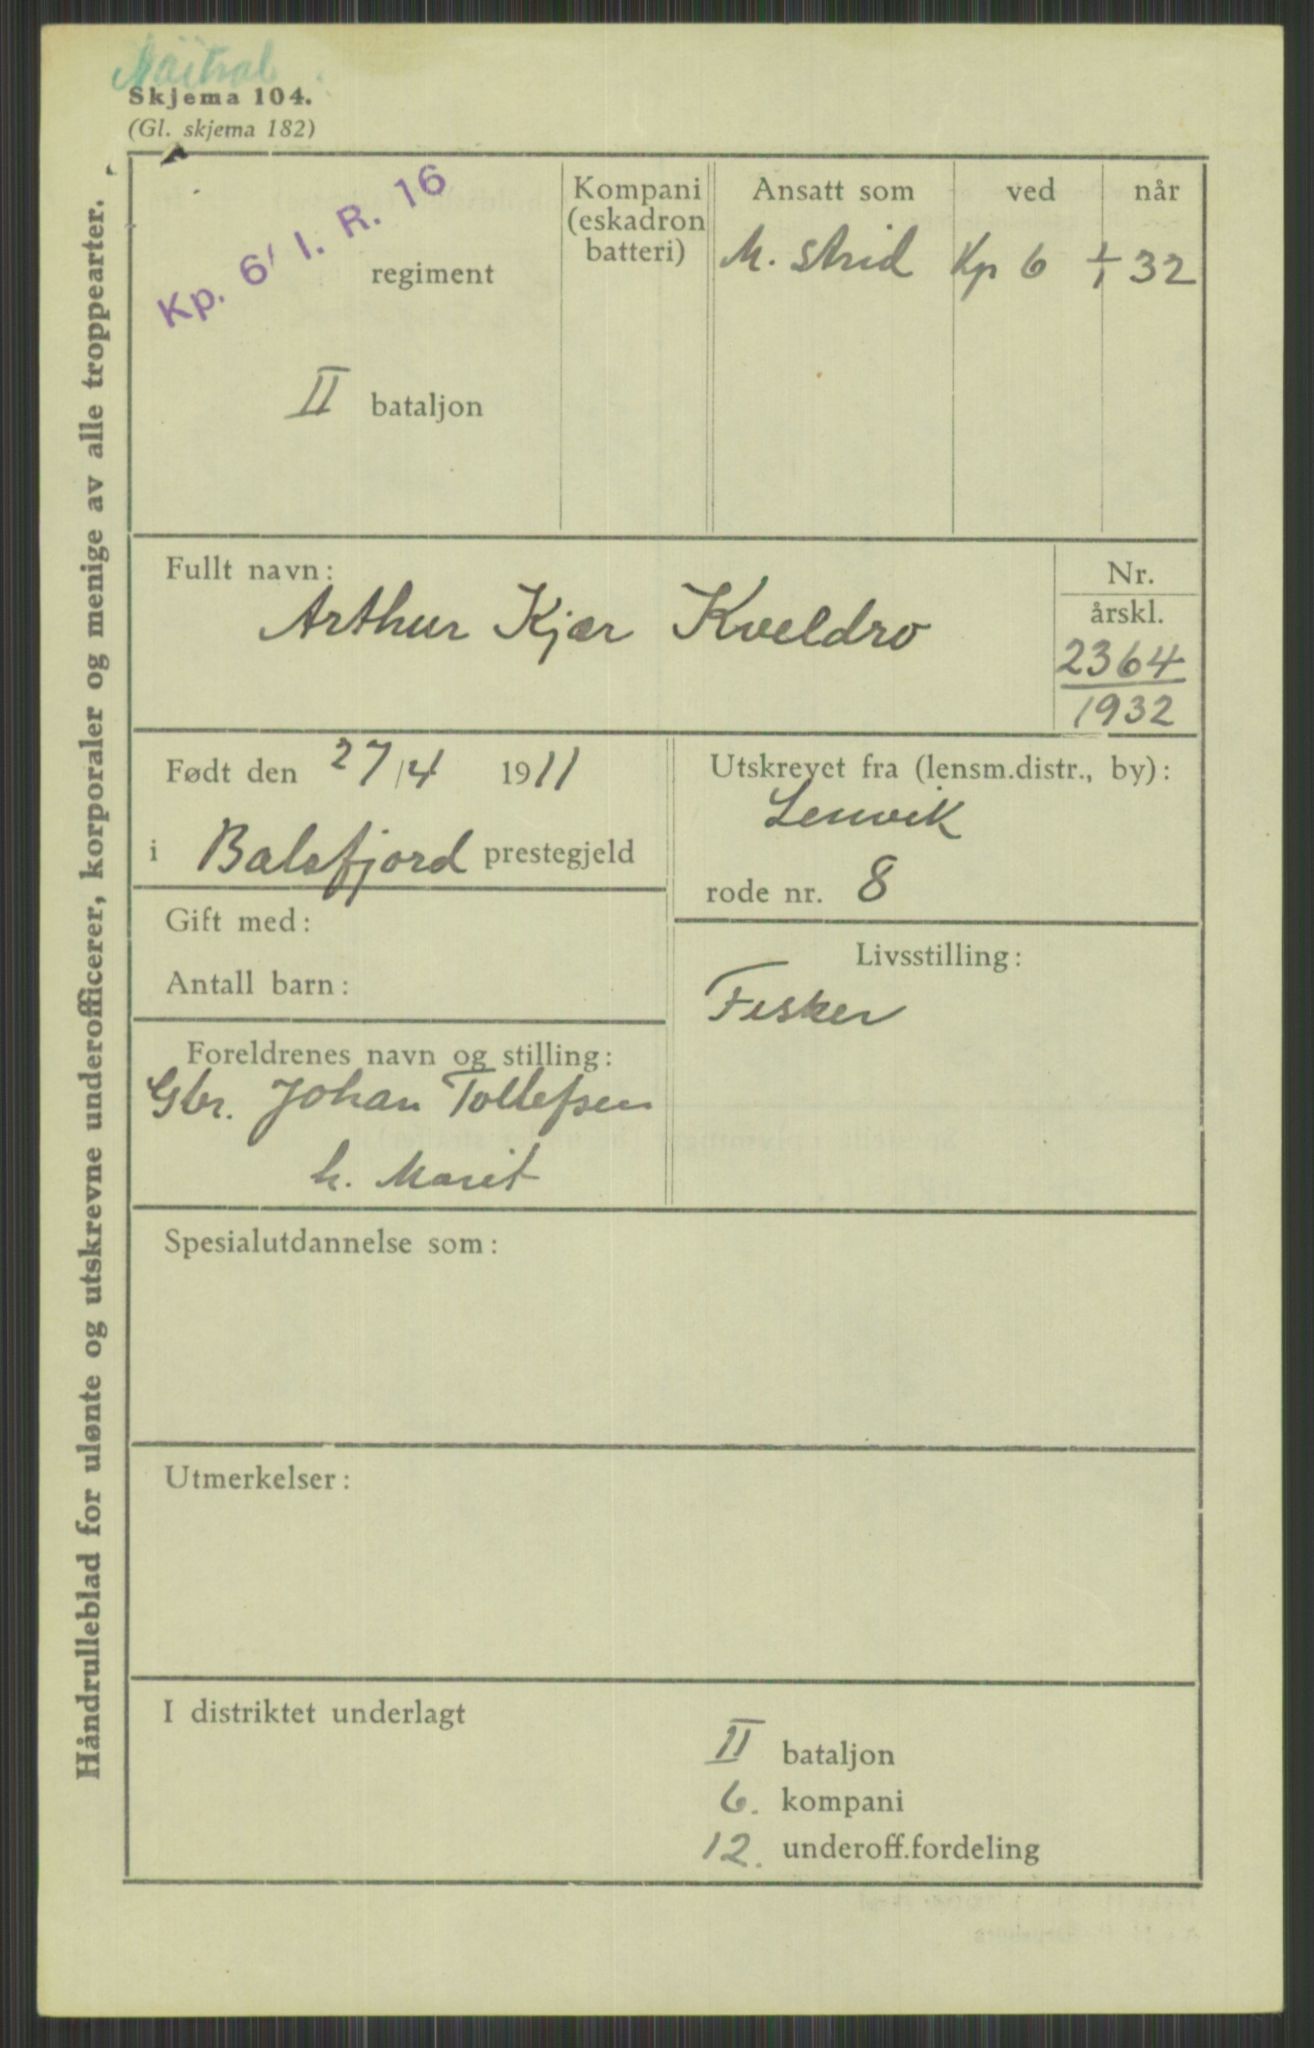 Skjema 104.
(Gl. skjema 182)
Håndrulleblad for ulønte og utskrevne underofficerer, korporaler og menige av alle troppearter.
Kp. 6/ I. R. 16
regiment
II bataljon
Kompani
(eskadron
batteri)
Ansatt som
M. strid
ved
Kp 6
når
1/1 32
Fullt navn:
Arthur Kjær Kveldro
Nr.
årskl.
2364
1932
Født den 27/4 1911
i Balsfjord prestegjeld
Utskrevet fra (lensm.distr., by):
Lenvik
rode nr. 8
Gift med:
Antall barn:
Livsstilling:
Fisker
Foreldrenes navn og stilling:
Gbr. Johan Tollefsen
h. Marit
Spesialutdannelse som:
Utmerkelser:
I distriktet underlagt
II bataljon
6. kompani
12. underoff.fordeling